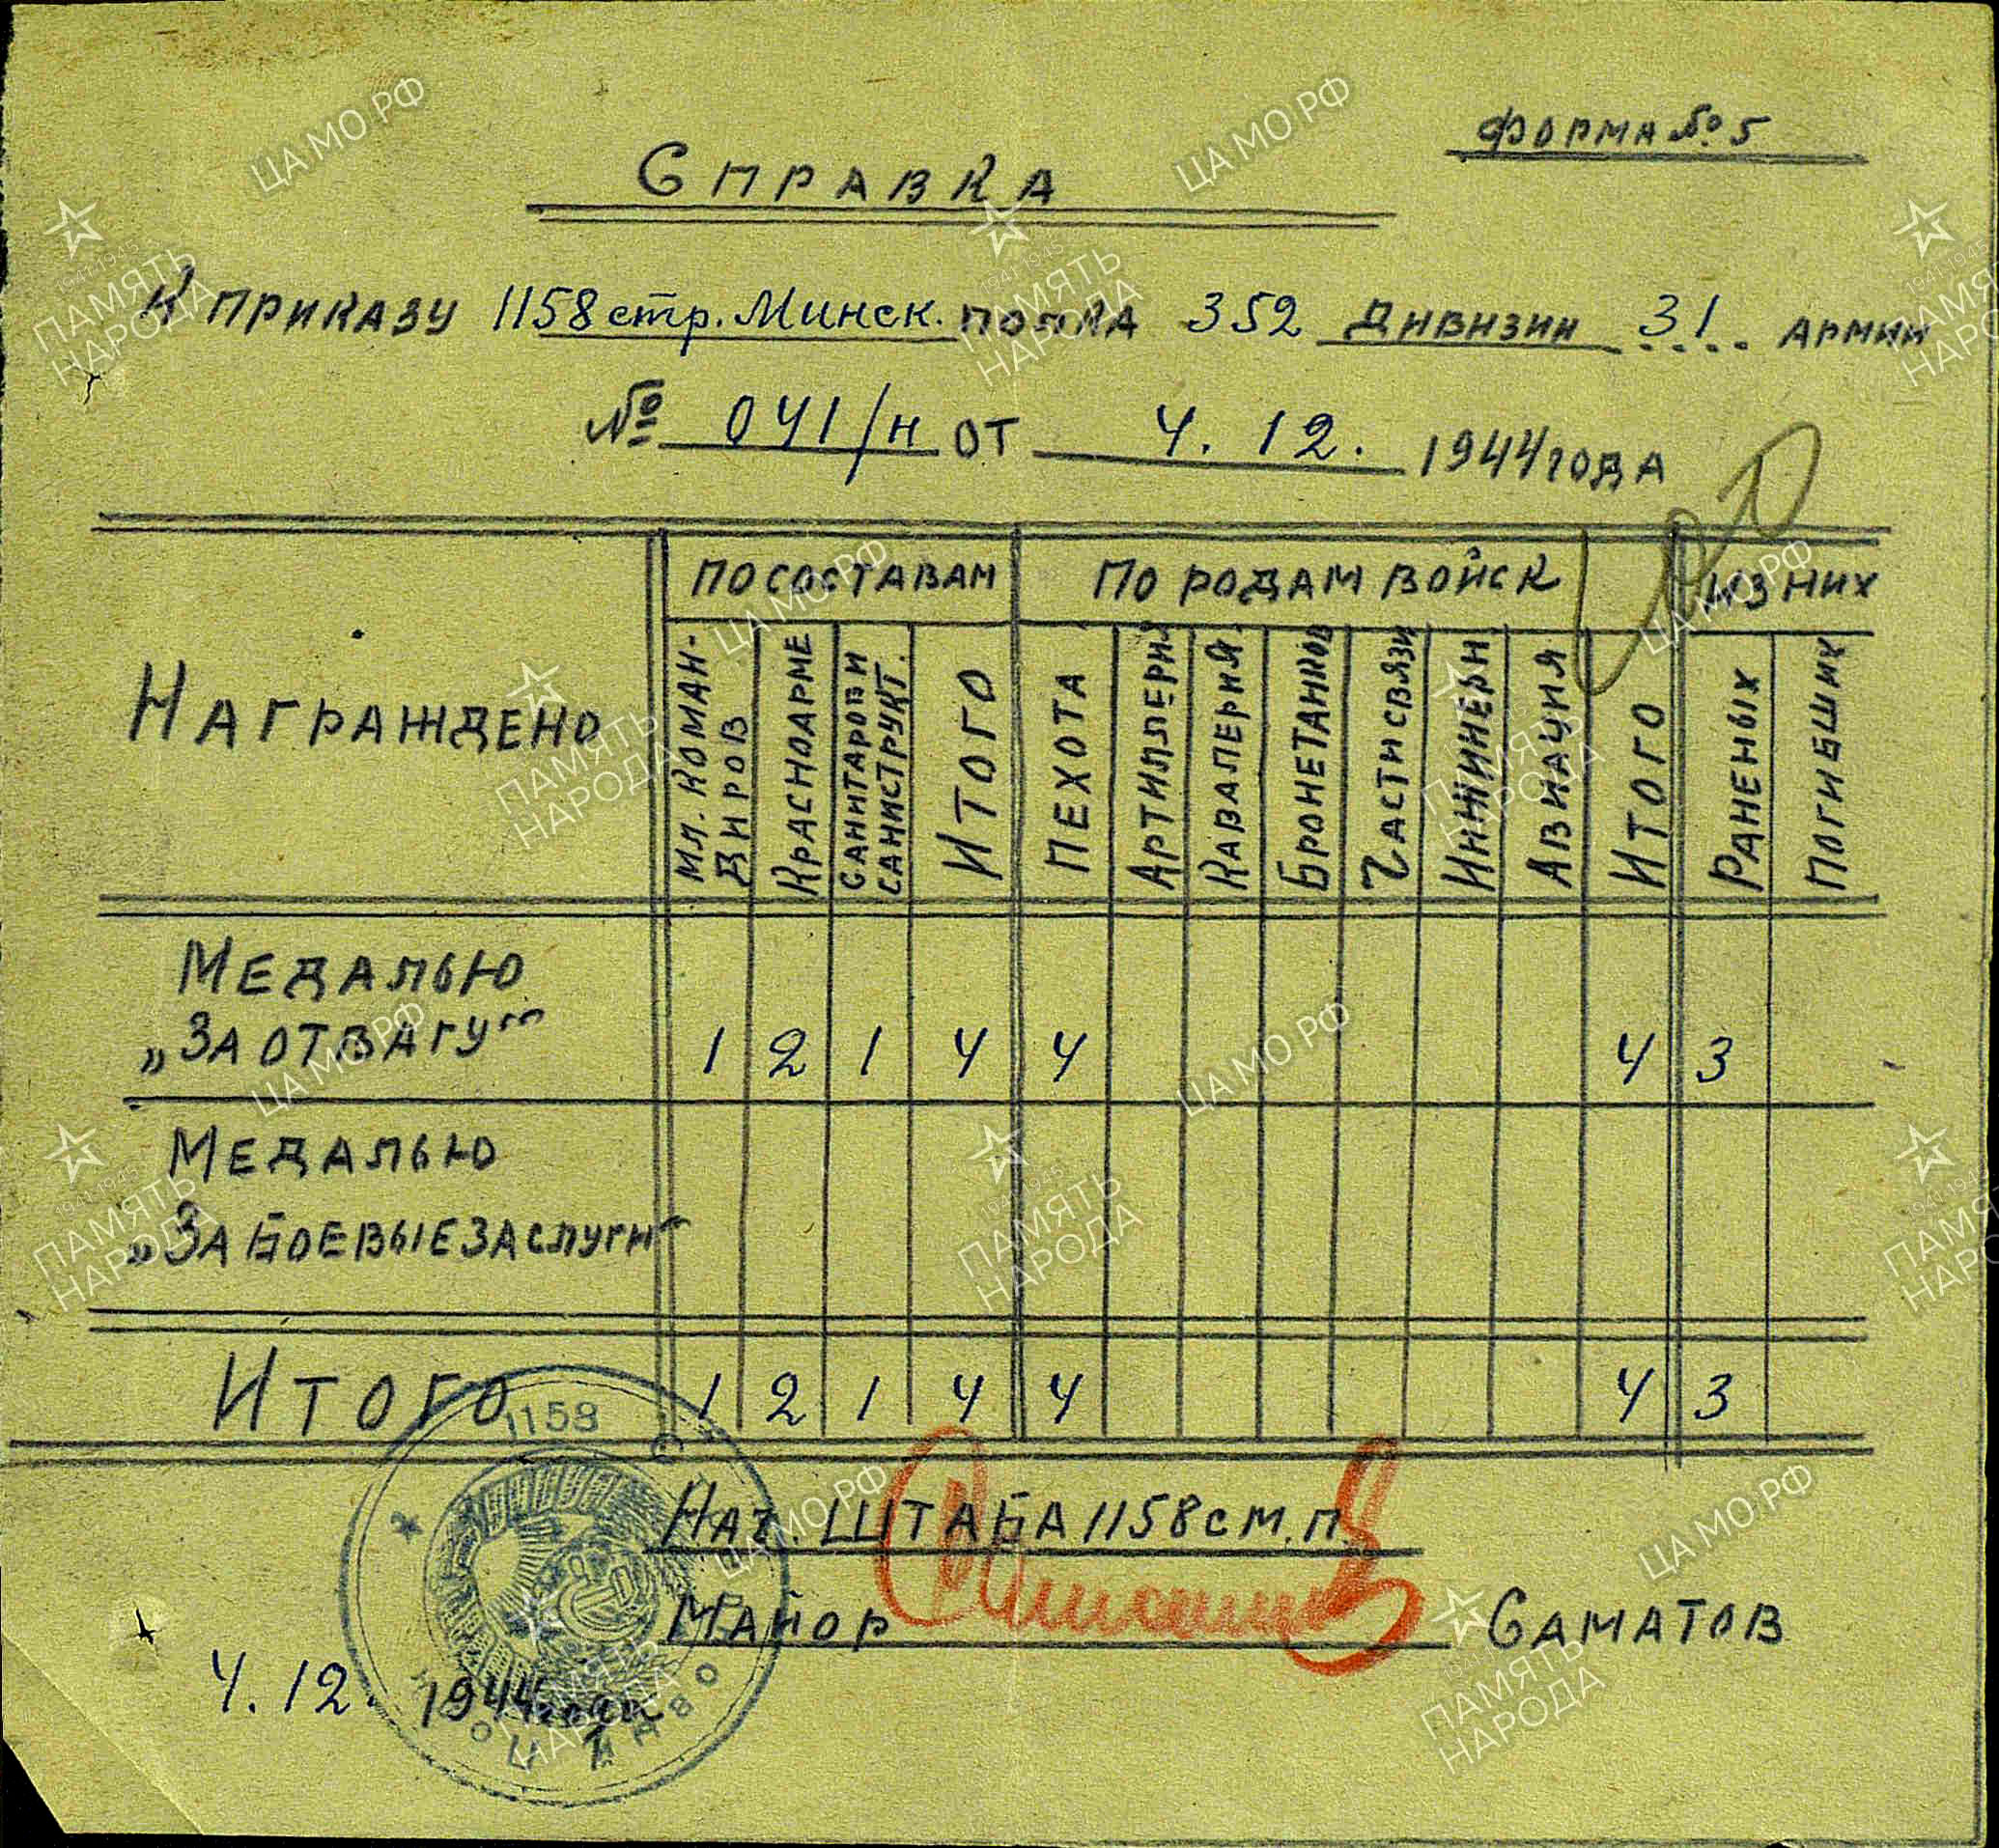 Форма № 5
Справка
К приказу 1158 стр. Минск. полка 352 дивизии 31 армии
№ 041/н от 4. 12. 1944 года
Награждено
По составам
По родам войск
Из них
Мл. коман-
диров
Красноарме
Санитаров и
санинструкт.
Итого
Пехота
Артиллерия
Кавалерия
Бронетанков
Части связи
Инжинерн
Авиация
Итого
Раненых
Погибших
Медалью
„За отвагу" 1 2 1 4 4 4 3
Медалью
„За боевые заслуги"
Итого 1 2 1 4 4 4 3
1158
Нач. штаба 1158 см.п.
Майор Саматов
4. 12. 1944 года
ЦА МО РФ
1941-1945
ПАМЯТЬ
НАРОДА